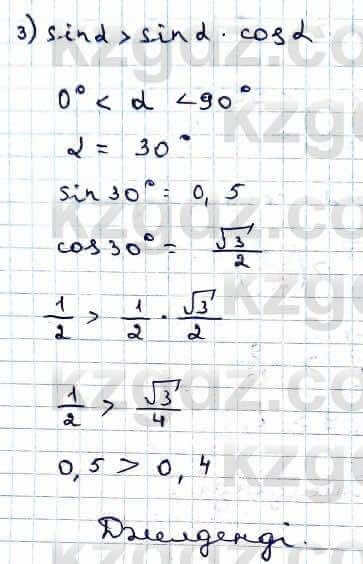 3) sin α > sin α · cos α
0° < α < 90°
α = 30°
sin 30° = 0,5
cos 30° = √3/2
1/2 > 1/2 · √3/2
1/2 > √3/4
0,5 > 0,4
Дәлелденді.
kzgdz.com